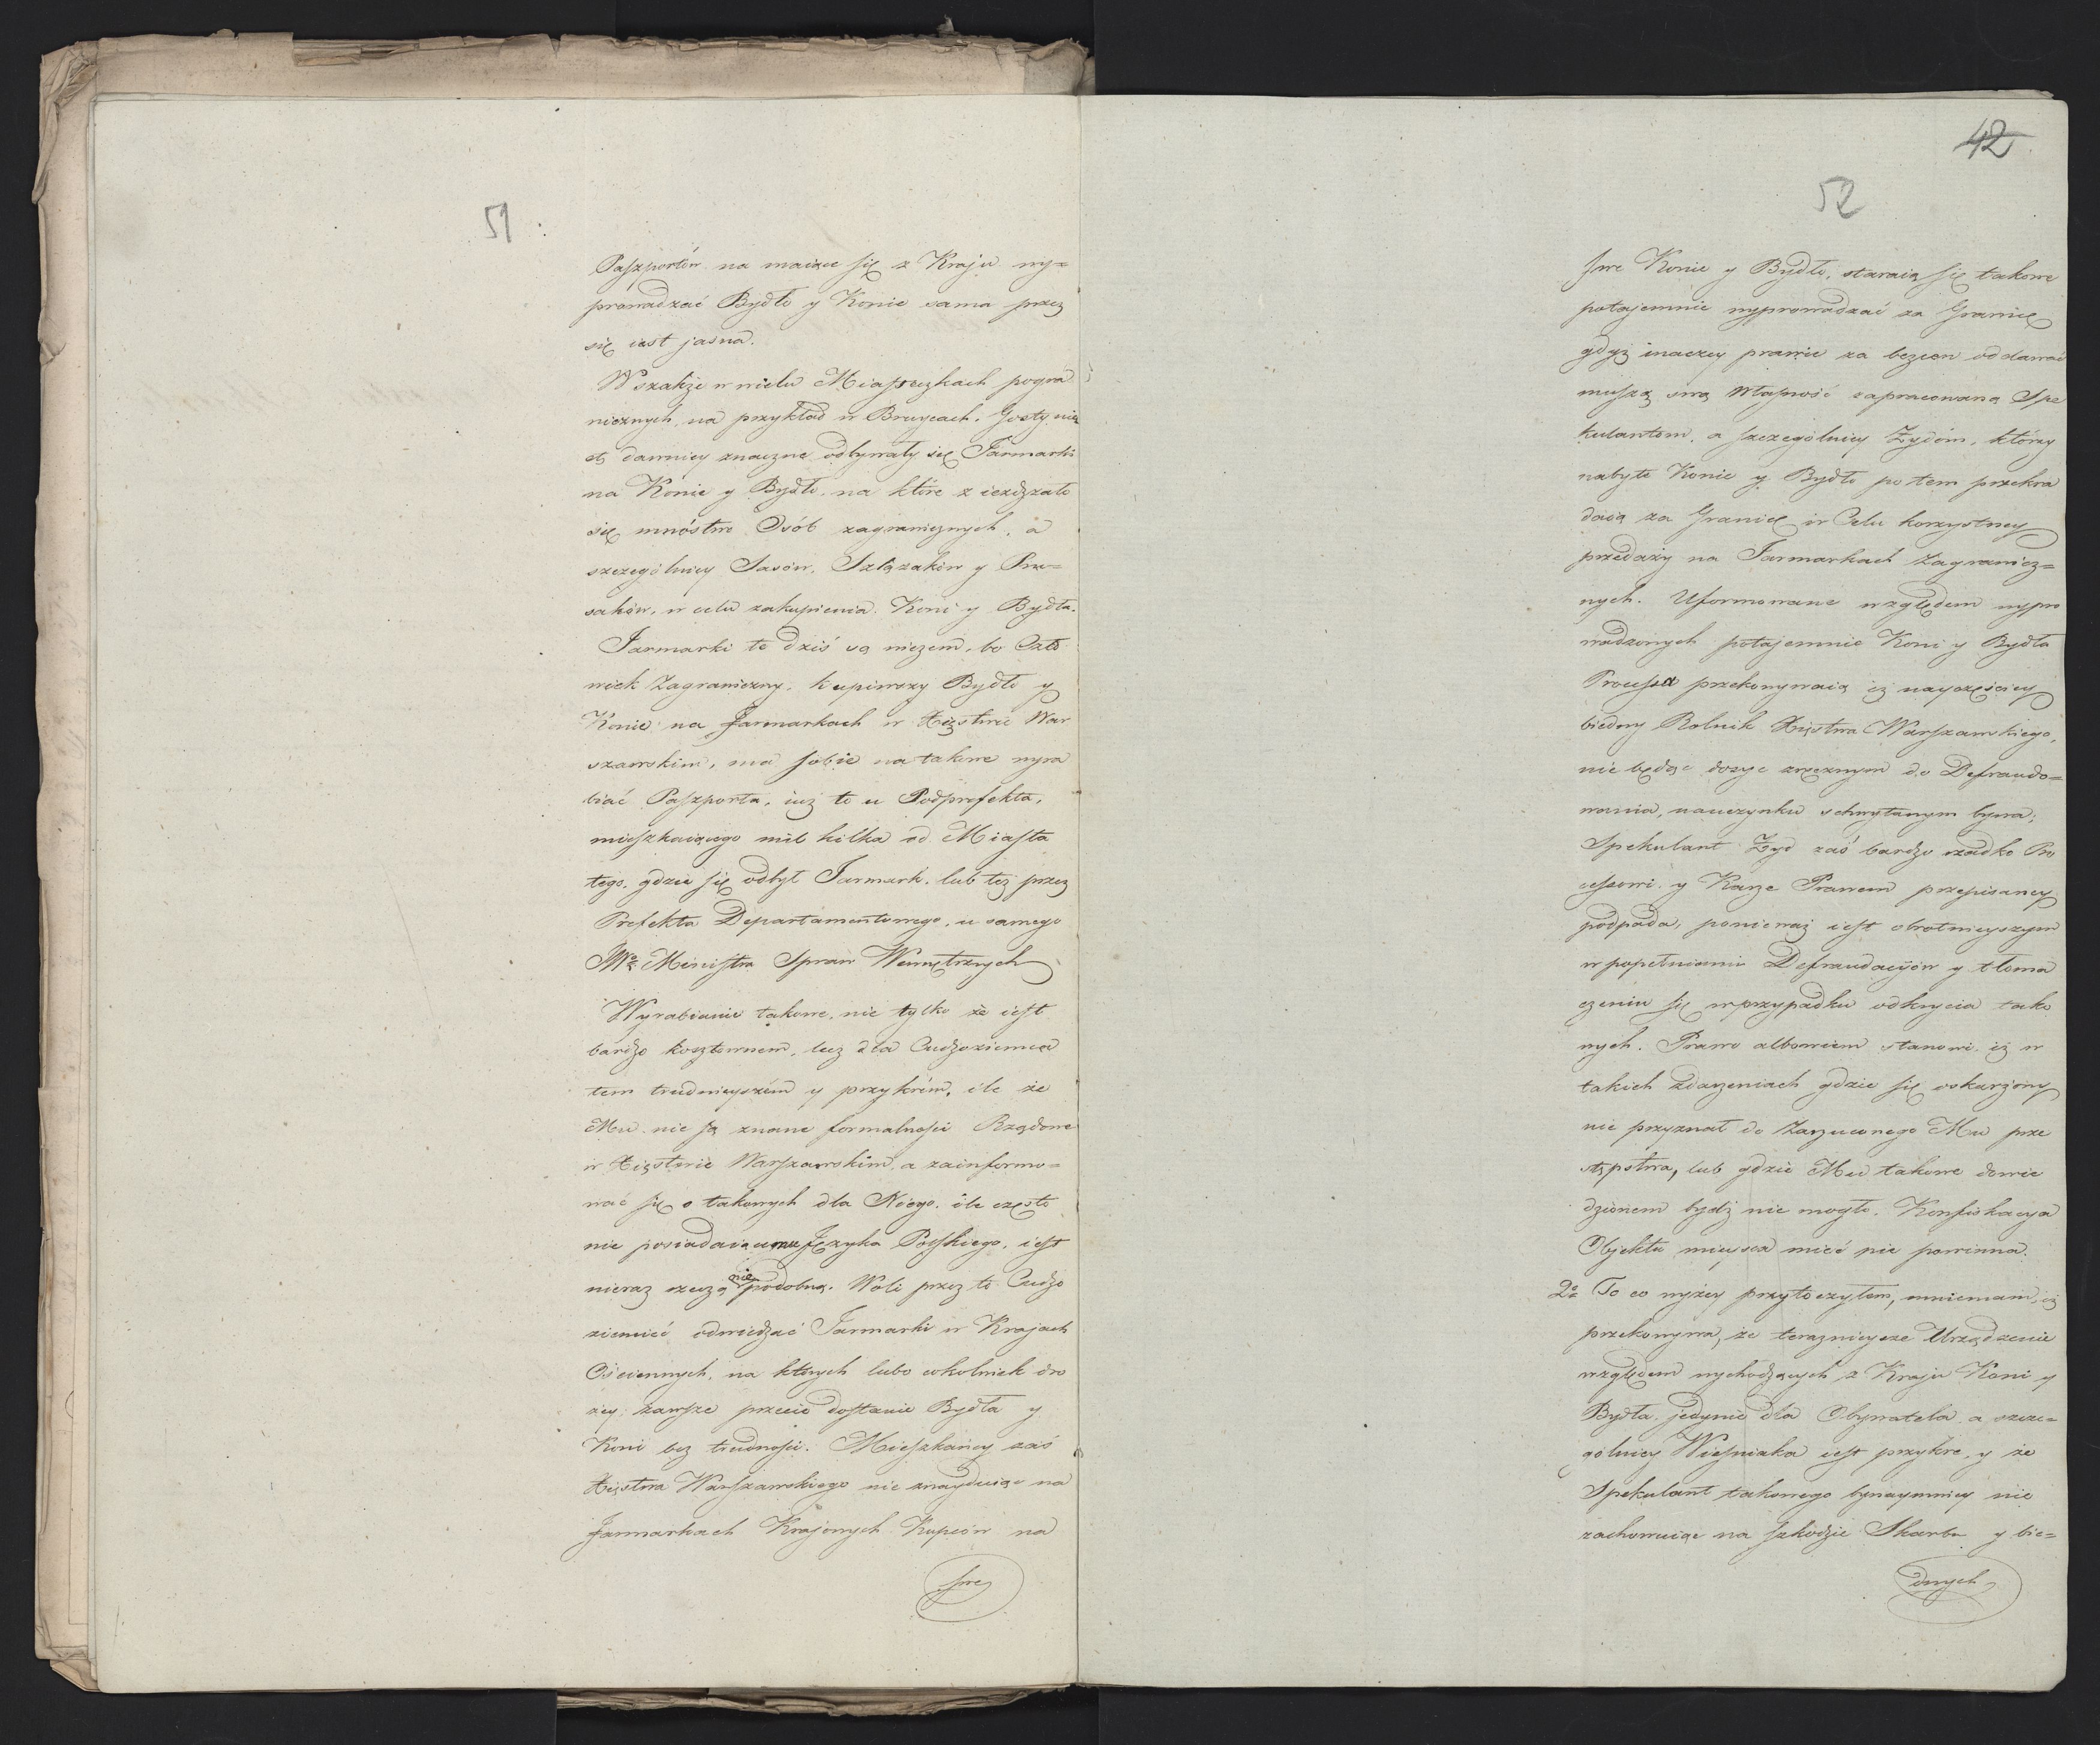 51
Paszportów na maiące się z Kraju wy=
prowadzać Bydło y Konie sama przez
się iest jasna.
Wszakże w wielu Miasteczkach pogra
nicznych, na przykład w Gostyniu
et dawniey znaczne odbywały się Jarmarki
na Konie y Bydło, na które zieżdzało
się mnóstwo Osób zagranicznych, a
szczególniey Sasów, Szlązaków y Pru=
saków, w celu zakupienia Koni y Bydła.
Jarmarki te dziś są niczem, bo Czło
wiek Zagraniczny, kupiwszy Bydło y
Konie na Jarmarkach w Xięstwie War
szawskim, ma sobie na takowe wyra
biać Paszporta, iuż to u Podprefekta,
mieszkaiącego mil kilka od Miasta
tego, gdzie się odbył Jarmark, lub też przez
Prefekta Departamentowego, u samego
JWo Ministra Spraw Wewnętrznych
Wyrabianie takowe, nie tylko że iest
bardzo kosztownem, lecz dla Cudzoziemca
tem trudnieyszém y przykrém, ile że
Mu nie są znane formalności Rządowe
w Xięstwie Warszawskim, a zainformo=
wać się o takowych dla Niego, ile często
nie posiadaiącemu Języka Polskiego, iest
nieraz rzeczą niepodobną. Woli przez to Cudzo
ziemiec odwiedzać Jarmarki w Krajach
Ościennych, na których lubo cokolwiek dro
żey, zawsze przecie dostanie Bydła y
Koni bez trudności. Mieszkańcy zaś
Xięstwa Warszawskiego nie znayduiąc na
Jarmarkach Krajowych Kupców na
swe
42
52
swe Konie y Bydło, staraią się takowe
potajemnie wyprowadzać za Granicę
gdyż inaczey prawie za bezcen oddawać
muszą swą własność zapracowaną Spe
kulantom, a szczególniey Żydóm, którzy
nabyte Konie y Bydło potem przekra
daią za Granicę w Celu korzystney
przedaży na Jarmarkach Zagranicz=
nych. Uformowane względem wypro
wadzonych potajemnie Koni y Bydła
Processa przekonywaią iż nayczęściey
biedny Rolnik Xięstwa Warszawskiego,
nie będąc dosyc zręcznym do Defraudo=
wania, na uczynku schwytanym bywa;
Spekulant Żyd zaś bardzo rzadko Pro
cessowi y Karze Prawem przepisaney
podpada, ponieważ iest obrotnieyszym
w popełnianiu Defraudacyów y tłoma
czeniu się w przypadku odkrycia tako
wych. Prawo albowiem stanowi, iż w
takich zdarzeniach gdzie się oskarżony
nie przyznał do Zarzuconego Mu prze
stępstwa, lub gdzie Mu takowe dowie
dzionem bydź nie mogło, Konfiskacya
Objektu mieysca mieć nie powinna.
2o To co wyżey przytoczyłem, mniemam, iż
przekonywa, że teraznieysze Urządzenie
względem wychodzących z Kraju Koni y
Bydła, jedynie dla Obywatela a szcze=
gólniey Wieśniaka iest przykre, y że
Spekulant takowego bynaymniey nie
zachowuiąc na szkodzie Skarbu y bie=
dnych